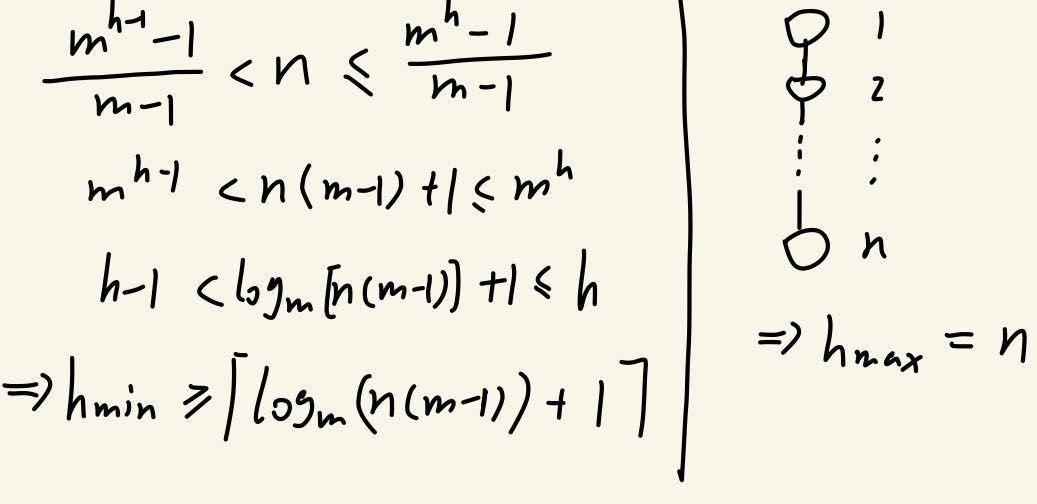 (m^{h-1} - 1)/(m-1) < n ≤ (m^h - 1)/(m-1)
m^{h-1} < n(m-1) + 1 ≤ m^h
h-1 < log_m [n(m-1)] + 1 ≤ h
⇒ h_min ≥ ⌈log_m (n(m-1)) + 1⌉
1
2
⋮
n
⇒ h_max = n